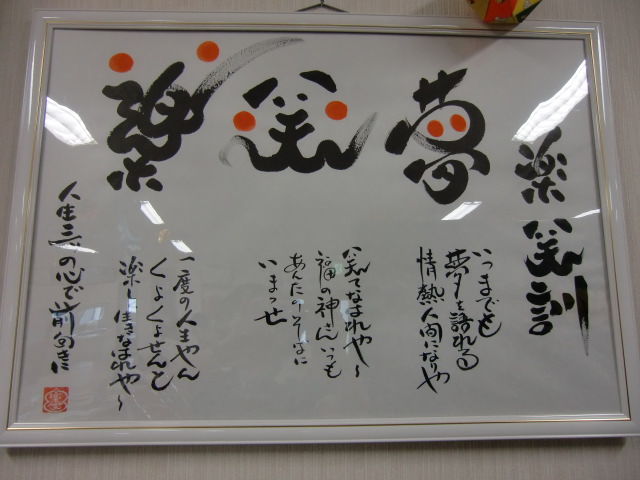 楽笑訓
夢
いつまでも
夢を語れる
情熱人間になりや
笑
笑てなはれや〜
福の神さんいつも
あんたのそばに
いまっせ
楽
一度の人生やん
くよくよせんと
楽しく生きなはれや〜
人生三つの心で前向きに